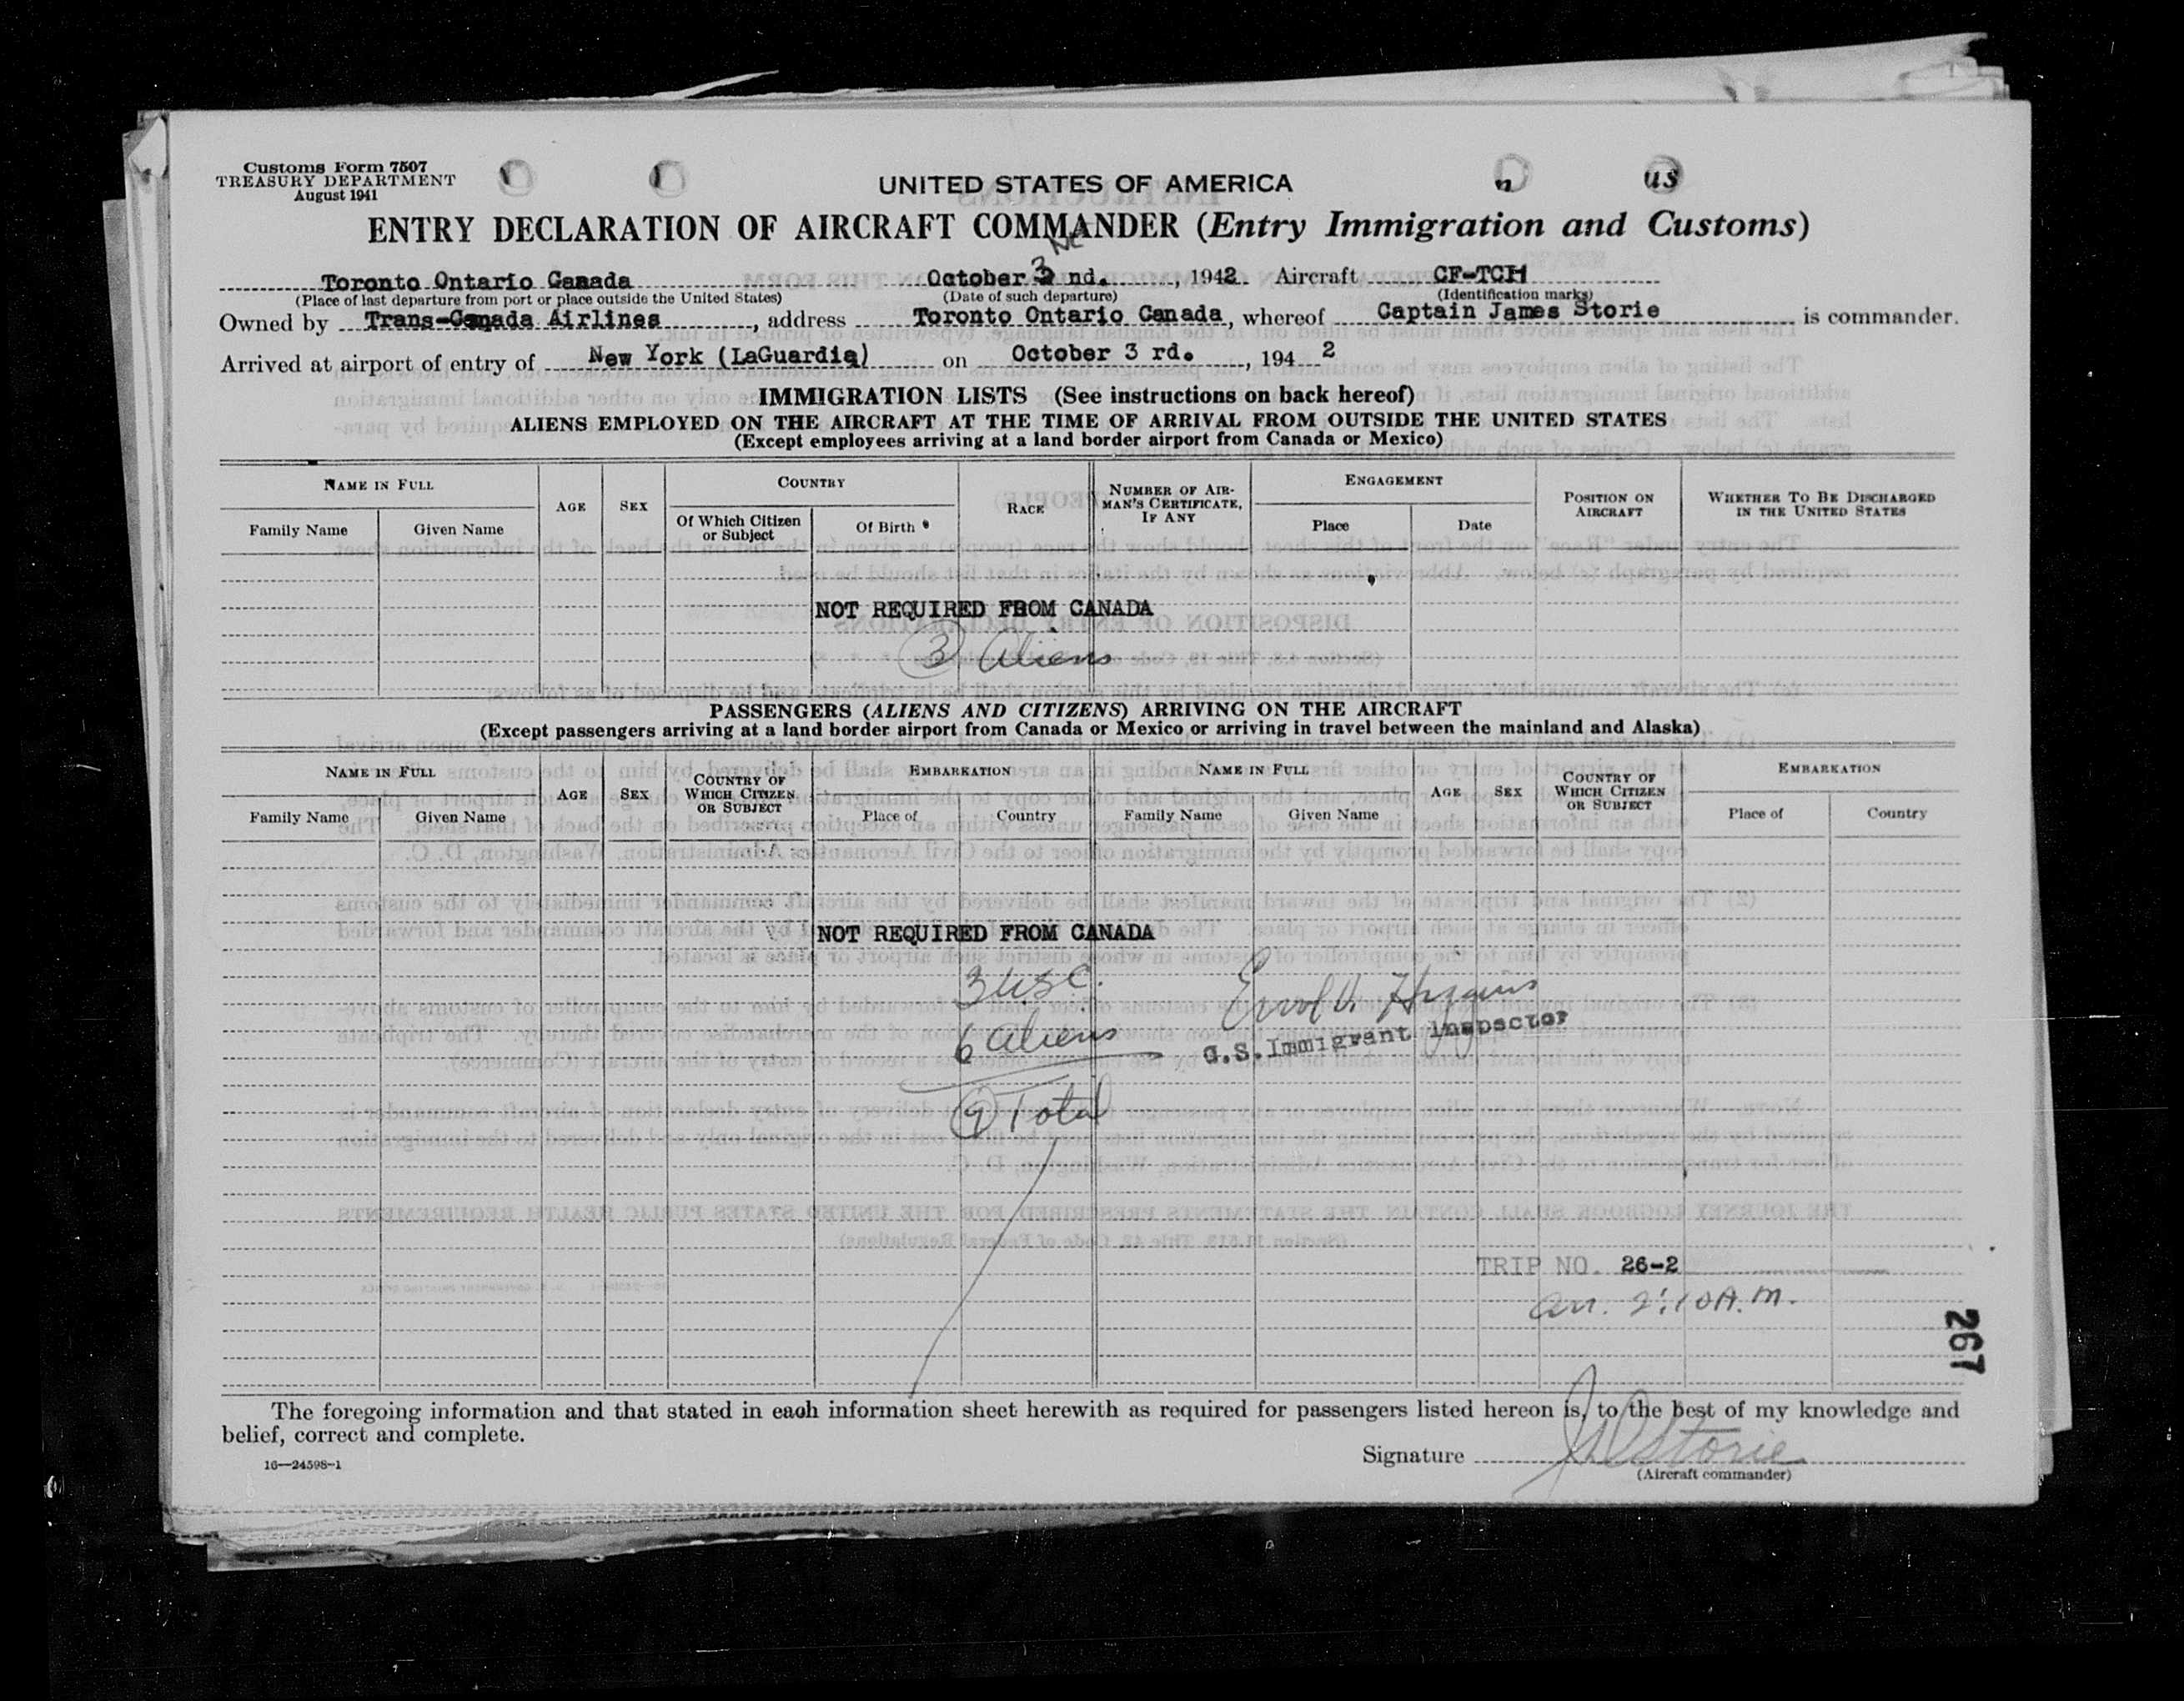 Customs Form 7507
TREASURY DEPARTMENT
August 1941
UNITED STATES OF AMERICA
us
ENTRY DECLARATION OF AIRCRAFT COMMANDER (Entry Immigration and Customs)
Toronto Ontario Canada October 3 nd. , 1942 Aircraft CF-TCH
(Place of last departure from port or place outside the United States) (Date of such departure) (Identification marks)
Owned by Trans-Canada Airlines , address Toronto Ontario Canada , whereof Captain James Storie is commander.
Arrived at airport of entry of New York (LaGuardia) on October 3 rd. , 194 2
IMMIGRATION LISTS (See instructions on back hereof)
ALIENS EMPLOYED ON THE AIRCRAFT AT THE TIME OF ARRIVAL FROM OUTSIDE THE UNITED STATES
(Except employees arriving at a land border airport from Canada or Mexico)
NAME IN FULL AGE SEX COUNTRY RACE NUMBER OF AIR-MAN'S CERTIFICATE, IF ANY ENGAGEMENT POSITION ON AIRCRAFT WHETHER TO BE DISCHARGED IN THE UNITED STATES
Family Name Given Name Of Which Citizen or Subject Of Birth Place Date
NOT REQUIRED FROM CANADA
3 Aliens
PASSENGERS (ALIENS AND CITIZENS) ARRIVING ON THE AIRCRAFT
(Except passengers arriving at a land border airport from Canada or Mexico or arriving in travel between the mainland and Alaska)
NAME IN FULL AGE SEX COUNTRY OF WHICH CITIZEN OR SUBJECT EMBARKATION NAME IN FULL AGE SEX COUNTRY OF WHICH CITIZEN OR SUBJECT EMBARKATION
Family Name Given Name Place of Country Family Name Given Name Place of Country
NOT REQUIRED FROM CANADA
3 USC.
Errol V. Higgins
6 Aliens
U.S. Immigrant Inspector
9 Total
TRIP NO. 26-2
arr. 2:10 A.M.
267
The foregoing information and that stated in each information sheet herewith as required for passengers listed hereon is, to the best of my knowledge and
belief, correct and complete.
Signature J Storie
(Aircraft commander)
16—24598-1